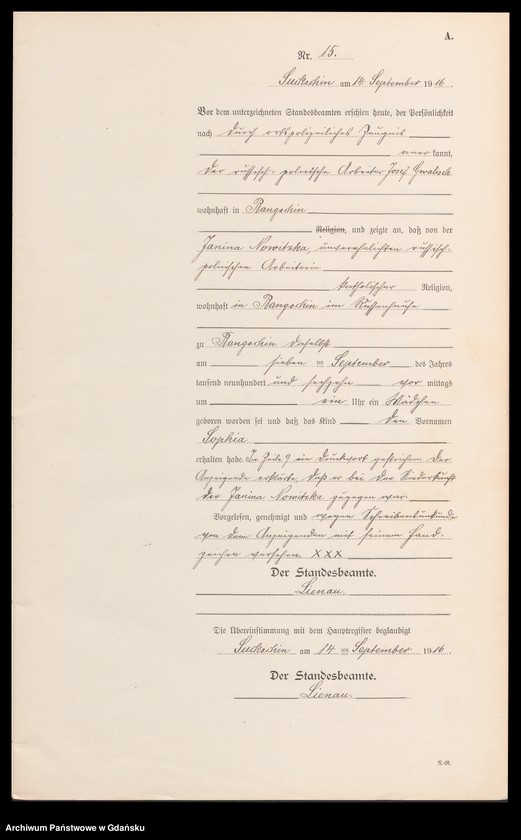 A.
Nr. 15.
Suckschin am 14. September 1916.
Vor dem unterzeichneten Standesbeamten erschien heute, der Persönlichkeit
nach durch ortspolizeiliches Zeugnis
anerkannt,
der russisch-polnische Arbeiter Josef
wohnhaft in Rangschin
Religion, und zeigte an, daß von der
Janina Nowitzka, unverehelichten russisch-
polnischen Arbeiterin
katholischer Religion,
wohnhaft in Rangschin im
zu Rangschin daselbst
am sieben ten September des Jahres
tausend neunhundert und sechzehn vor mittags
um ein Uhr ein Mädchen
geboren worden sei und daß das Kind den Vornamen
Sophia
erhalten habe. In Zeile 9 ein Druckwort gestrichen. Der
Anzeigende erklärte, daß er bei der Niederkunft
der Janina Nowitzka zugegen war.
Vorgelesen, genehmigt und wegen Schreibensunkunde
von dem Anzeigenden mit seinem Hand-
zeichen versehen. XXX
Der Standesbeamte.
Lienau.
Die Übereinstimmung mit dem Hauptregister beglaubigt
Suckschin am 14 ten September 1916.
Der Standesbeamte.
Lienau.
Archiwum Państwowe w Gdańsku